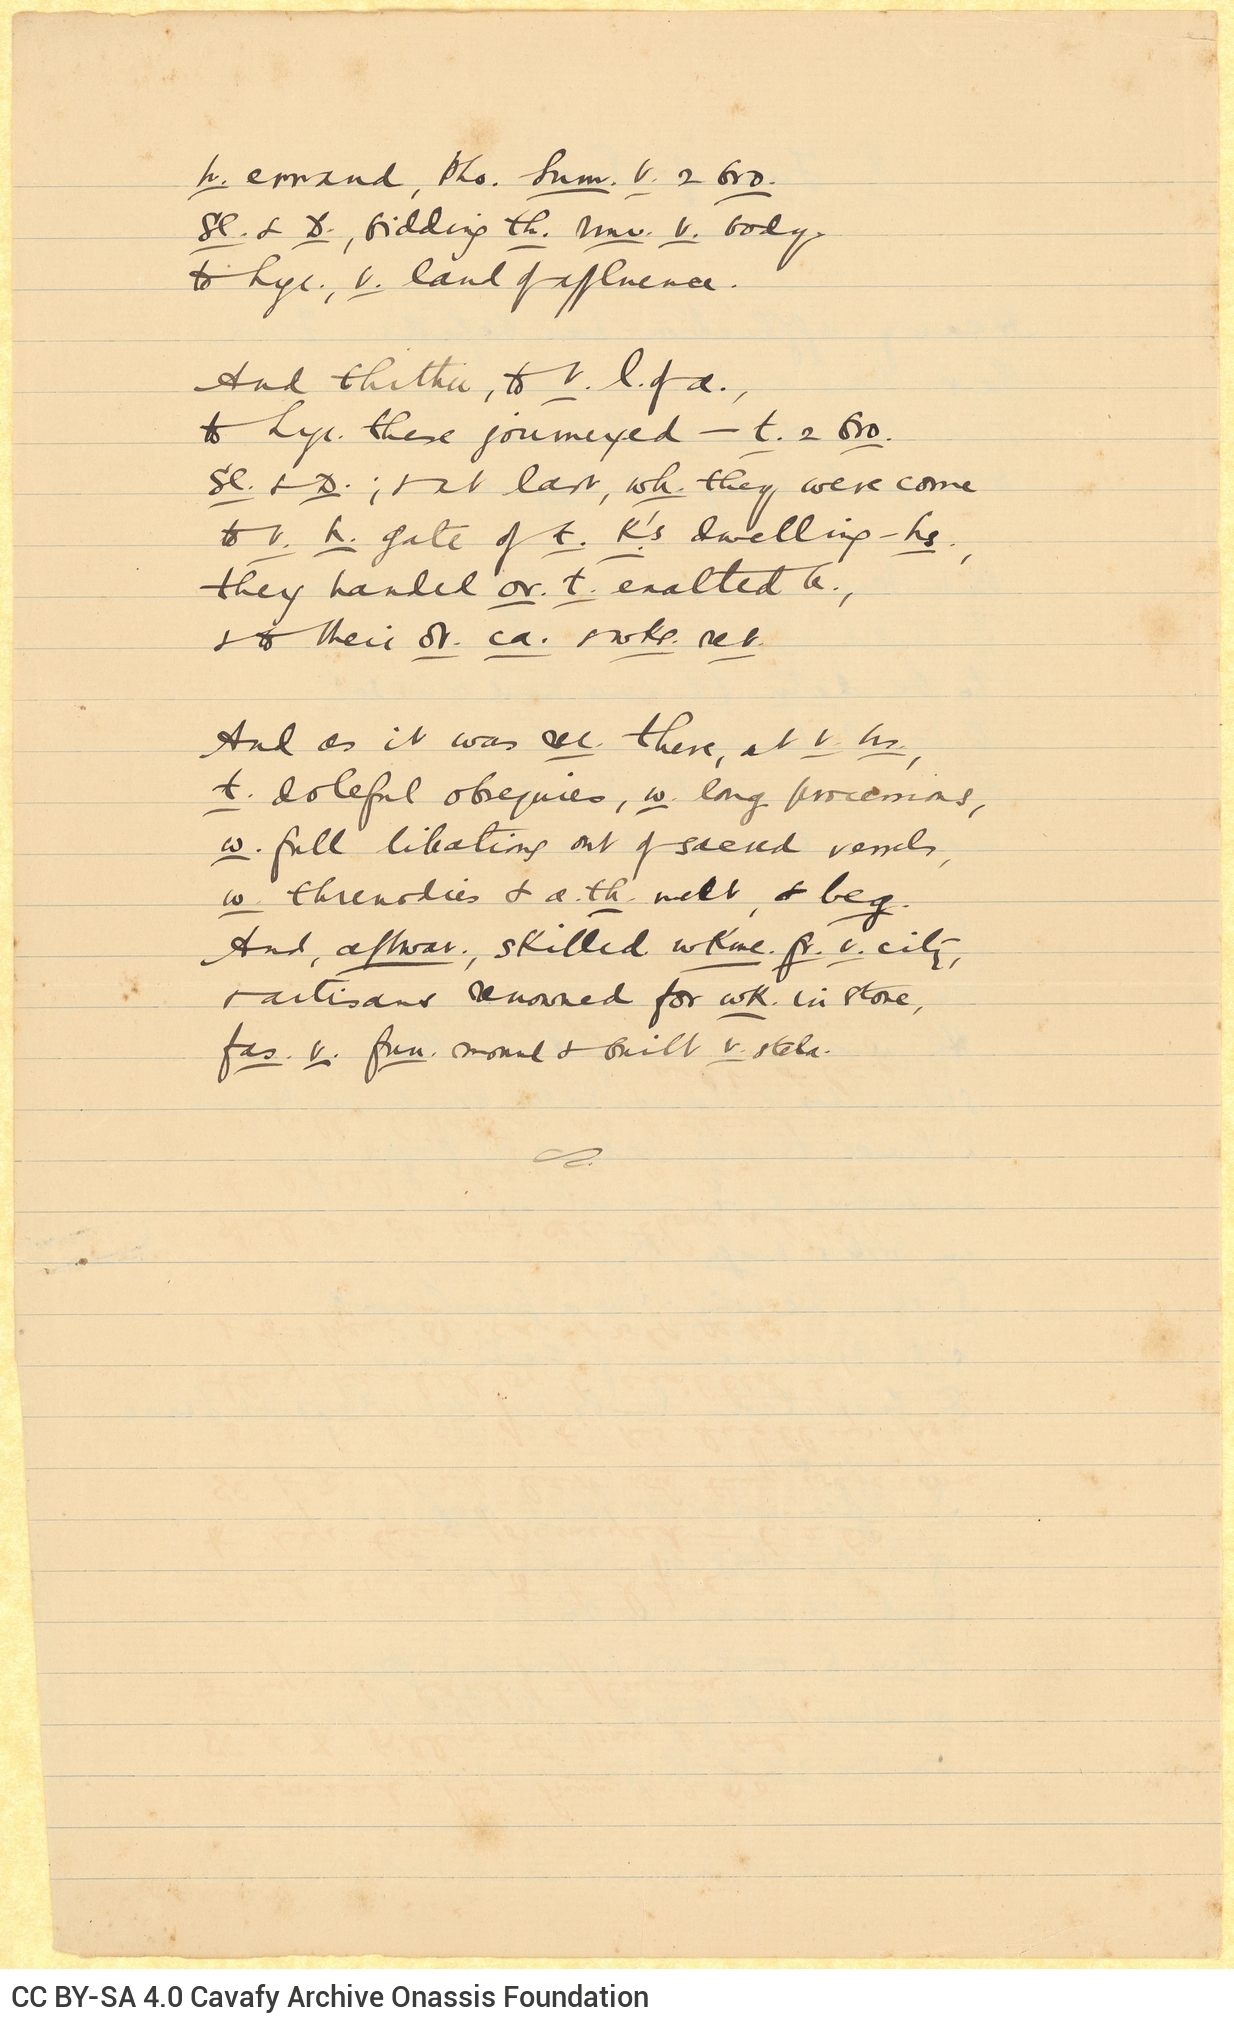 h. errand, Pho. Sum. v. 2 bro.
Sl. & D., bidding th. rmv. v. body
to Lyc., v. land of affluence.
And thither, to v. l. of a.,
to Lyc. these journeyed — t. 2 bro.
Sl. & D.; & at last, wh. they were come
to v. h. gate of t. K's dwelling-hs.,
they handed ov. t. exalted b.,
& to their ot. ca. & wks. ret.
And as it was rec. there, at v. hs.,
t. doleful obsequies, w. long processions,
w. full libations out of sacred vessels,
w. threnodies & a. th. melt, & beg.
And, aftwar., skilled wkme. fr. v. city,
& artisans renowned for wk. in stone,
fas. v. fun. mound & built v. stela.
CC BY-SA 4.0 Cavafy Archive Onassis Foundation